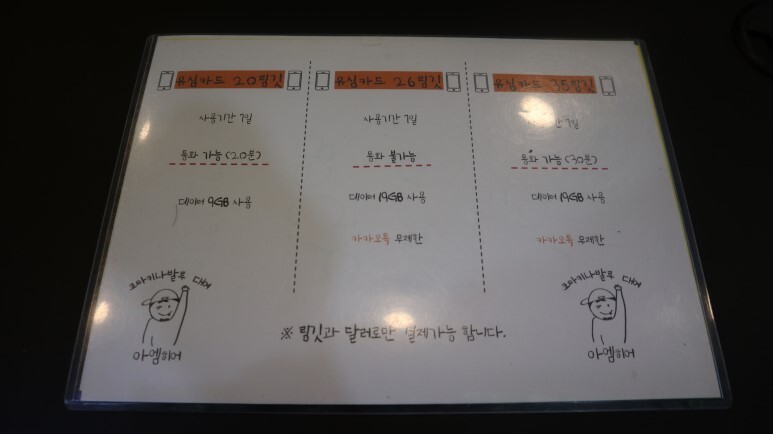 유심카드 20링깃
사용기간 7일
통화 가능(20분)
데이터 9GB 사용
유심카드 26링깃
사용기간 7일
통화 불가능
데이터 19GB 사용
카카오톡 무제한
유심카드 35링깃
기간 7일
통화 가능(30분)
데이터 19GB 사용
카카오톡 무제한
코타키나발루 대여
아엠히어
코타키나발루 대여
아엠히어
※ 링깃과 달러로만 결제가능 합니다.